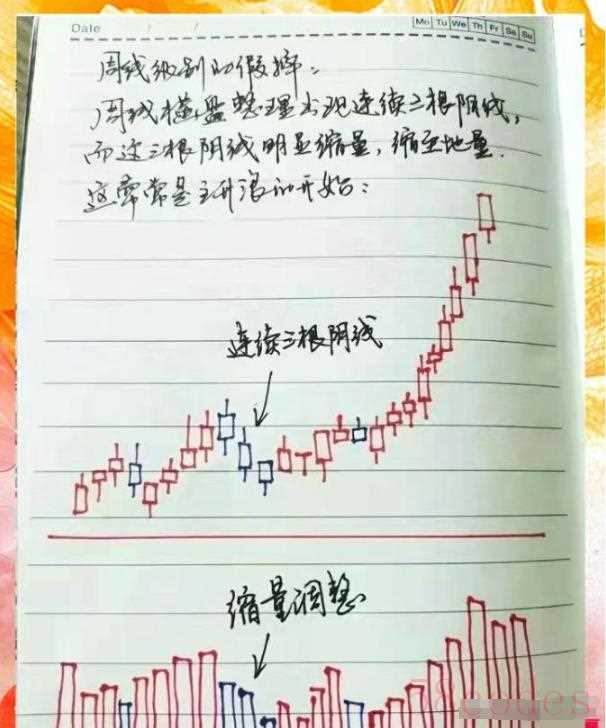 Date / /
Mo Tu We Th Fr Sa Su
周线级别的假摔：
周线横盘整理出现连续三根阴线，
而这三根阴线明显缩量，缩至地量．
这常常是主升浪的开始：
连续三根阴线
缩量调整